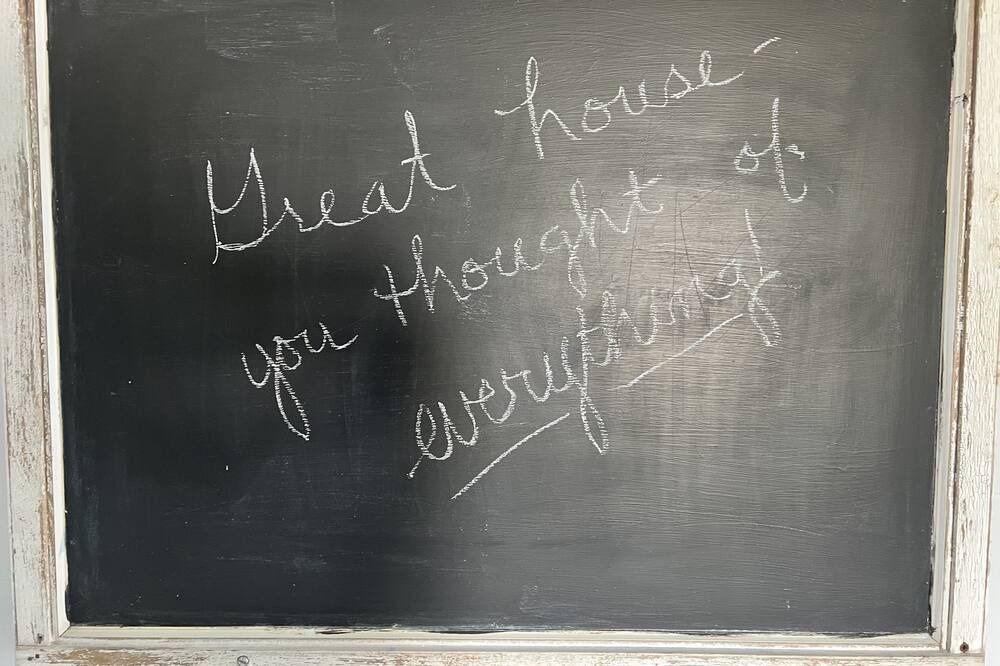 Great house -
you thought of
everything!